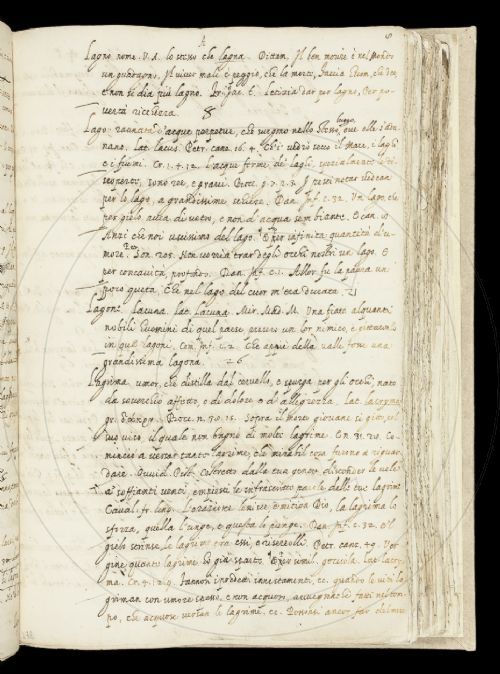 Lagno nome. V. A. lo stesso che lagna. Dittam. Il ben morire è nel Mondo
un guadagno, Il viver male è peggio, che la morte,
e non si dia più lagno. Letizia dar per lagno, Per po-
vertà ricchezza.
Lago. raunata d'acque perpetue, che vegnono nello stesso luogo,
nano. lat. lacus. Petr. canz. 16. 4. Ch'i' vedrò secco il Mare, e laghi
e i fiumi. Cr. 1. 4. 12. l'acque ferme de' laghi, specialmente
sono ree, e gravi. Bocc. I pesci notar vedean
per lo lago, a grandissime schiere. Dan. Inf. c. 32. Un lago, che
per gielo avea di vetro, e non d'acqua sembiante. E can. 10
Anzi che noi uscissimo del lago. E per infinita quantità d'u-
more. Petr. Son. 203. Non vedria trar degli occhi nostri un lago. E
per concavità profonda. Dan. Inf. c. 1. Allor fu la paura un
poco queta, Che nel lago del cuor m'era durata. 21
Lagone. Lacuna. lat. Lacuna. Mir. Mad. M. Una fiata alquanti
nobili huomini di quel paese presero un lor nimico, e
in quel lagoni. Com. Inf. c. 2. Che appiè della valle forse una
grandissima lagona. 26
Lagrima. umor, che distilla dal cervello, e sgorga per gli occhi, nato
da soverchio affetto, e di dolore o di allegrezza. lat. lacryma
gr. δάκρυ. Bocc. n. Sopra il morto giovane si gittò, e'l
suo viso, il quale non bagnò di molte lagrime. En. 31. 20. Co-
minciò a versar tante lagrime, che mirabil cosa furono a riguar-
dare. Ovvid. Pist. Costretto dalla tua gente di scioglier le vele
a' soffianti venti, empiesti le infrascritte parole delle tue lagrime
Caval. fr. ling. L'orazione lenisce, e mitiga Dio, la lagrima lo
sforza, quella l'unge, e questa lo punge. Dan. Inf. c. 32. E'l
gielo strinse le lagrime tra essi, e riserrolli. Petr. canz. 49. Ver-
gine, quante lagrime ho già sparte. E per simil. gocciola. lat. lacry-
ma. Cr. 4. Facciasi innestamento, ec. quando le viti la-
griman con umore spesso, e non acquoso, avvegnachè fatti nel tem-
po, che acquose versan le lagrime, ec. Possonsi ancor far del mese